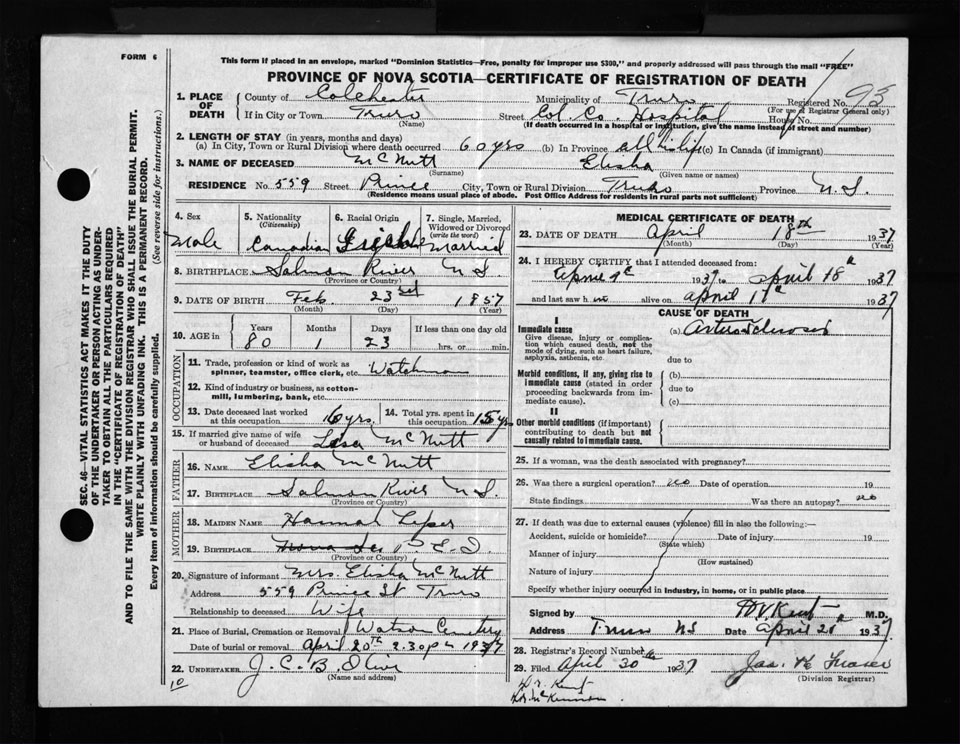 FORM 6
This form if placed in an envelope, marked "Dominion Statistics—Free, penalty for improper use $300," and properly addressed will pass through the mail "FREE"
PROVINCE OF NOVA SCOTIA—CERTIFICATE OF REGISTRATION OF DEATH
SEC. 46—VITAL STATISTICS ACT MAKES IT THE DUTY
OF THE UNDERTAKER OR PERSON ACTING AS UNDER-
TAKER TO OBTAIN ALL THE PARTICULARS REQUIRED
IN THE "CERTIFICATE OF REGISTRATION OF DEATH"
AND TO FILE THE SAME WITH THE DIVISION REGISTRAR WHO SHALL ISSUE THE BURIAL PERMIT.
WRITE PLAINLY WITH UNFADING INK. THIS IS A PERMANENT RECORD.
Every item of information should be carefully supplied. (See reverse side for instructions.)
1. PLACE OF DEATH County of Colchester Municipality of Truro Registered No. 93
(For use of Registrar General only)
If in City or Town Truro (Name) Street Col. Co. Hospital House No.
(If death occurred in a hospital or institution, give the name instead of street and number)
2. LENGTH OF STAY (in years, months and days)
(a) In City, Town or Rural Division where death occurred 60 yrs (b) In Province all his life (c) In Canada (if immigrant)
3. NAME OF DECEASED McNutt Elisha
(Surname) (Given name or names)
RESIDENCE No. 559 Street Prince City, Town or Rural Division Truro Province N.S.
(Residence means usual place of abode. Post Office Address for residents in rural parts not sufficient)
4. Sex Male
5. Nationality (Citizenship) Canadian
6. Racial Origin
7. Single, Married, Widowed or Divorced (write the word) Married
8. BIRTHPLACE Salmon River N S
(Province or Country)
9. DATE OF BIRTH Feb 23rd 1857
(Month) (Day) (Year)
10. AGE in Years 80 Months 1 Days 23 If less than one day old hrs. or min.
OCCUPATION
11. Trade, profession or kind of work as spinner, teamster, office clerk, etc. Watchman
12. Kind of industry or business, as cotton-mill, lumbering, bank, etc.
13. Date deceased last worked at this occupation 6 yrs.
14. Total yrs. spent in this occupation 15 yrs
15. If married give name of wife or husband of deceased McNutt
FATHER
16. NAME Elisha McNutt
17. BIRTHPLACE Salmon River N.S.
(Province or Country)
MOTHER
18. MAIDEN NAME Hannah Leper
19. BIRTHPLACE P.E.I.
(Province or Country)
20. Signature of informant Mrs. Elisha McNutt
Address 559 Prince St Truro
Relationship to deceased Wife
21. Place of Burial, Cremation or Removal Watson Cemetery
Date of burial or removal April 20th 2.30 pm 1937
22. UNDERTAKER J. C. B. Olive
(Name and address)
10
MEDICAL CERTIFICATE OF DEATH
23. DATE OF DEATH April 18th 1937
(Month) (Day) (Year)
24. I HEREBY CERTIFY that I attended deceased from:
1937 to April 18th 1937
and last saw him alive on April 17th 1937
CAUSE OF DEATH
I
Immediate cause
Give disease, injury or complication which caused death, not the mode of dying, such as heart failure, asphyxia, asthenia, etc.
(a) Arteriosclerosis
due to
Morbid conditions, if any, giving rise to immediate cause (stated in order proceeding backwards from immediate cause).
(b)
due to
(c)
II
Other morbid conditions (if important) contributing to death but not causally related to immediate cause.
25. If a woman, was the death associated with pregnancy?
26. Was there a surgical operation? no Date of operation 19
State findings Was there an autopsy? no
27. If death was due to external causes (violence) fill in also the following:—
Accident, suicide or homicide? Date of injury 19
(State which)
Manner of injury
(How sustained)
Nature of injury
Specify whether injury occurred in Industry, in home, or in public place
Signed by H V Kent M.D.
Address Truro NS Date April 20th 1937
28. Registrar's Record Number
29. Filed April 30 1937 Jas. H Fraser
(Division Registrar)
Dr. Kent
Dr. McKinnon